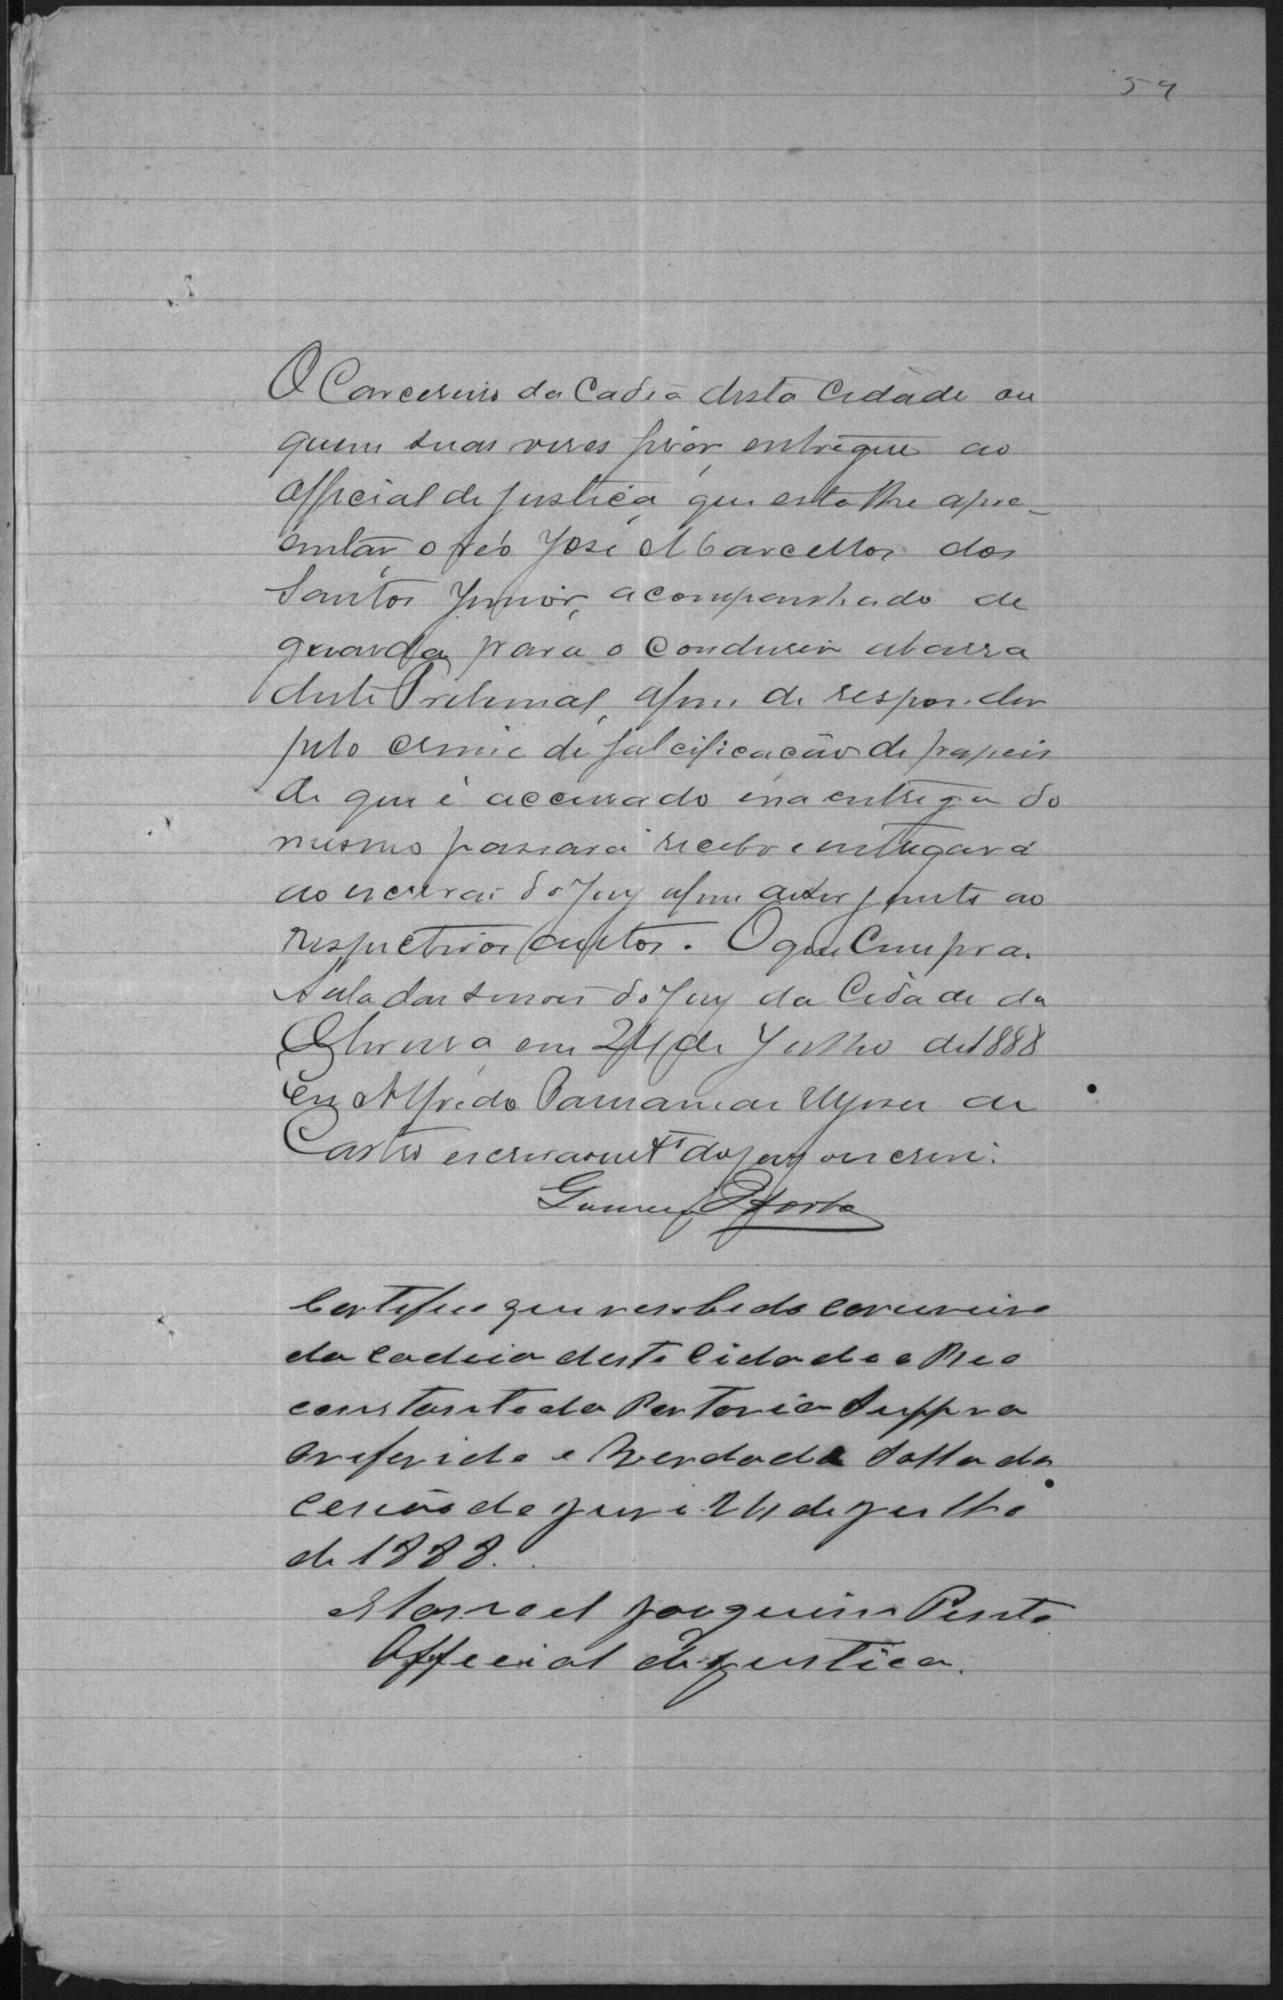 59
O Carcereiro da Cadêa desta Cidade ou
quem suas veses fizer, entregue ao
official de justiça, que esta lhe apre-
sentar, o réo José Marcellos dos
Santos Junior, acompanhado de
guarda para o condusir abarra
deste Tribunal, afim de responder
pelo crime de falcificação de papeis
de que é accusado ena entrega do
mesmo passará recebo e entregará
ao escrivão do Jury afim de ser junto ao
respectivos autos. O que Cumpra.
Sala das sessões do Jury da Cidade da
em 24 de Julho de 1888
Eu Alfredo de
Castro escrivão int.º do jury o escrevi.
Certifico que recebi do carcereiro
da cadeia desta Cidade o Reo
constante da Portaria Suppra
oreferido e verdade Salla da
cessão de jury 24 de julho
de 1888.
Manoel Joaquim Pinto
Official de justica.